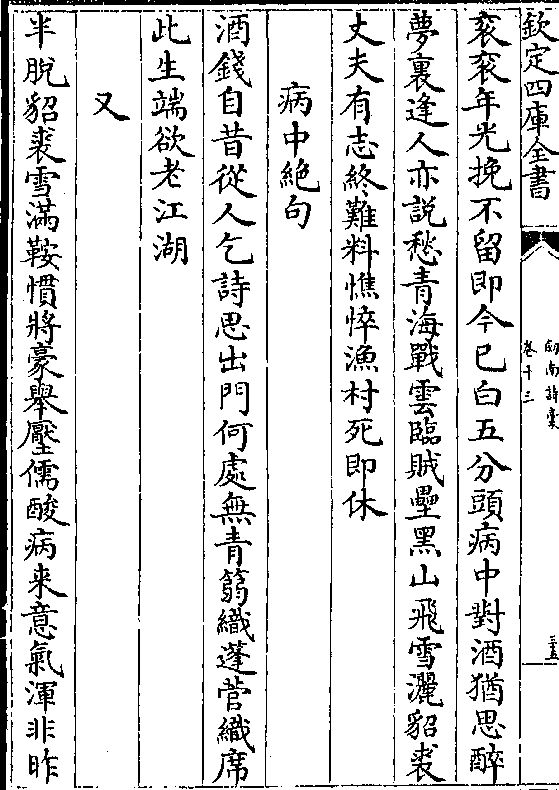 欽定四庫全書
劒南詩稾
卷十三
三五
衮衮年光挽不留即今已白五分頭病中對酒猶思醉
夢裏逢人亦説愁青海戰雲臨賊壘黑山飛雪灑貂裘
丈夫有志終難料憔悴漁村死即休
病中絶句
酒錢自昔從人乞詩思出門何處無青篛織蓬菅織席
此生端欲老江湖
又
半脫貂裘雪滿鞍慣將豪舉壓儒酸病来意氣渾非昨